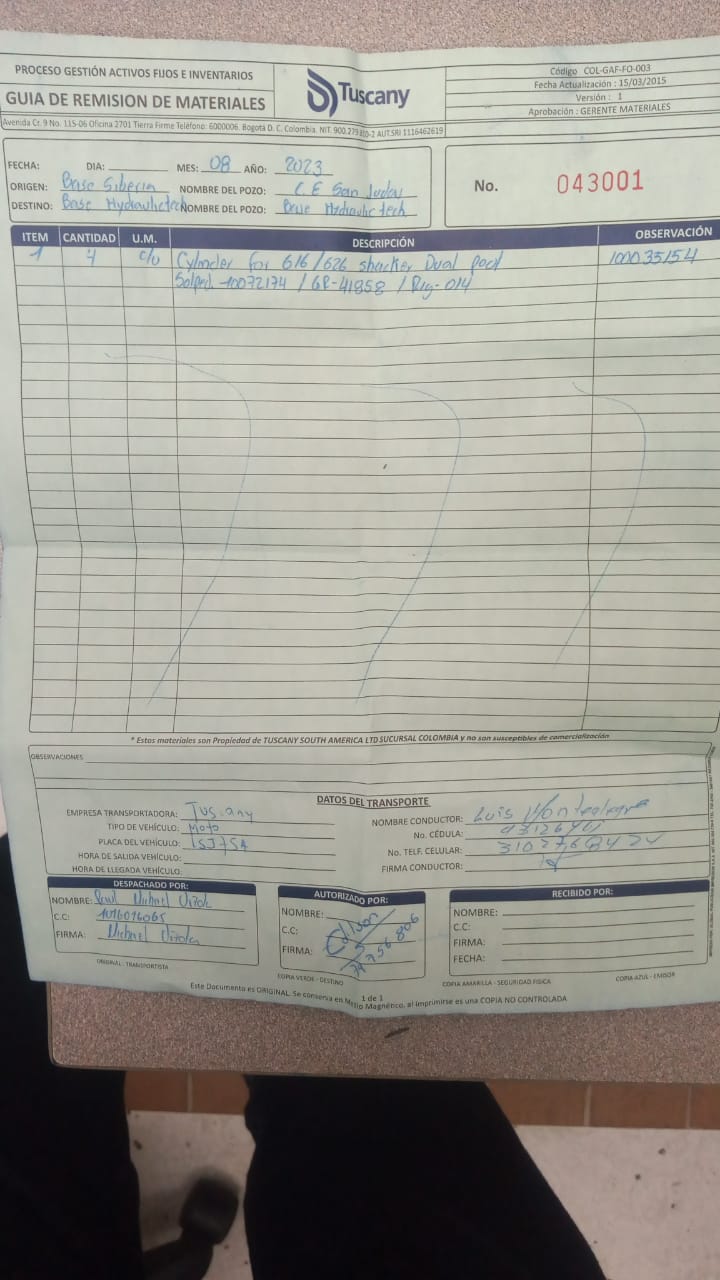 PROCESO GESTIÓN ACTIVOS FIJOS E INVENTARIOS
GUIA DE REMISION DE MATERIALES
Tuscany
Código COL-GAF-FO-003
Fecha Actualización : 15/03/2015
Versión : 1
Aprobación : GERENTE MATERIALES
Avenida Cr. 9 No. 115-06 Oficina 2701 Tierra Firme Teléfono: 6000006. Bogotá D. C. Colombia. NIT. 900.279 -2 AUT.SRI 1116462619
FECHA: DIA: MES: 08 AÑO: 2023
ORIGEN: Base Siberia NOMBRE DEL POZO: C.E San
DESTINO: Base Hydraulictech NOMBRE DEL POZO: Base Hydraulictech
No. 043001
ITEM CANTIDAD U.M. DESCRIPCIÓN OBSERVACIÓN
1 4 c/u Cylinder for 616/626 shacker Dual pool 100035154
Solped. 10072174 / GR-41858 / Rig-014
* Estos materiales son Propiedad de TUSCANY SOUTH AMERICA LTD SUCURSAL COLOMBIA y no son susceptibles de comercialización
OBSERVACIONES
DATOS DEL TRANSPORTE
EMPRESA TRANSPORTADORA: Tuscany
TIPO DE VEHÍCULO: Moto
PLACA DEL VEHÍCULO:
HORA DE SALIDA VEHÍCULO:
HORA DE LLEGADA VEHÍCULO:
NOMBRE CONDUCTOR: Luis Montealegre
No. CÉDULA:
No. TELF. CELULAR:
FIRMA CONDUCTOR:
DESPACHADO POR:
NOMBRE: Michael
C.C: 1016016065
FIRMA: Michael
AUTORIZADO POR:
NOMBRE:
C.C:
FIRMA:
Edison
RECIBIDO POR:
NOMBRE:
C.C:
FIRMA:
FECHA:
ORIGINAL - TRANSPORTISTA
COPIA VERDE - DESTINO
COPIA AMARILLA - SEGURIDAD FISICA
COPIA AZUL - EMISOR
1 de 1
Este Documento es ORIGINAL. Se conserva en Medio Magnético, al imprimirse es una COPIA NO CONTROLADA